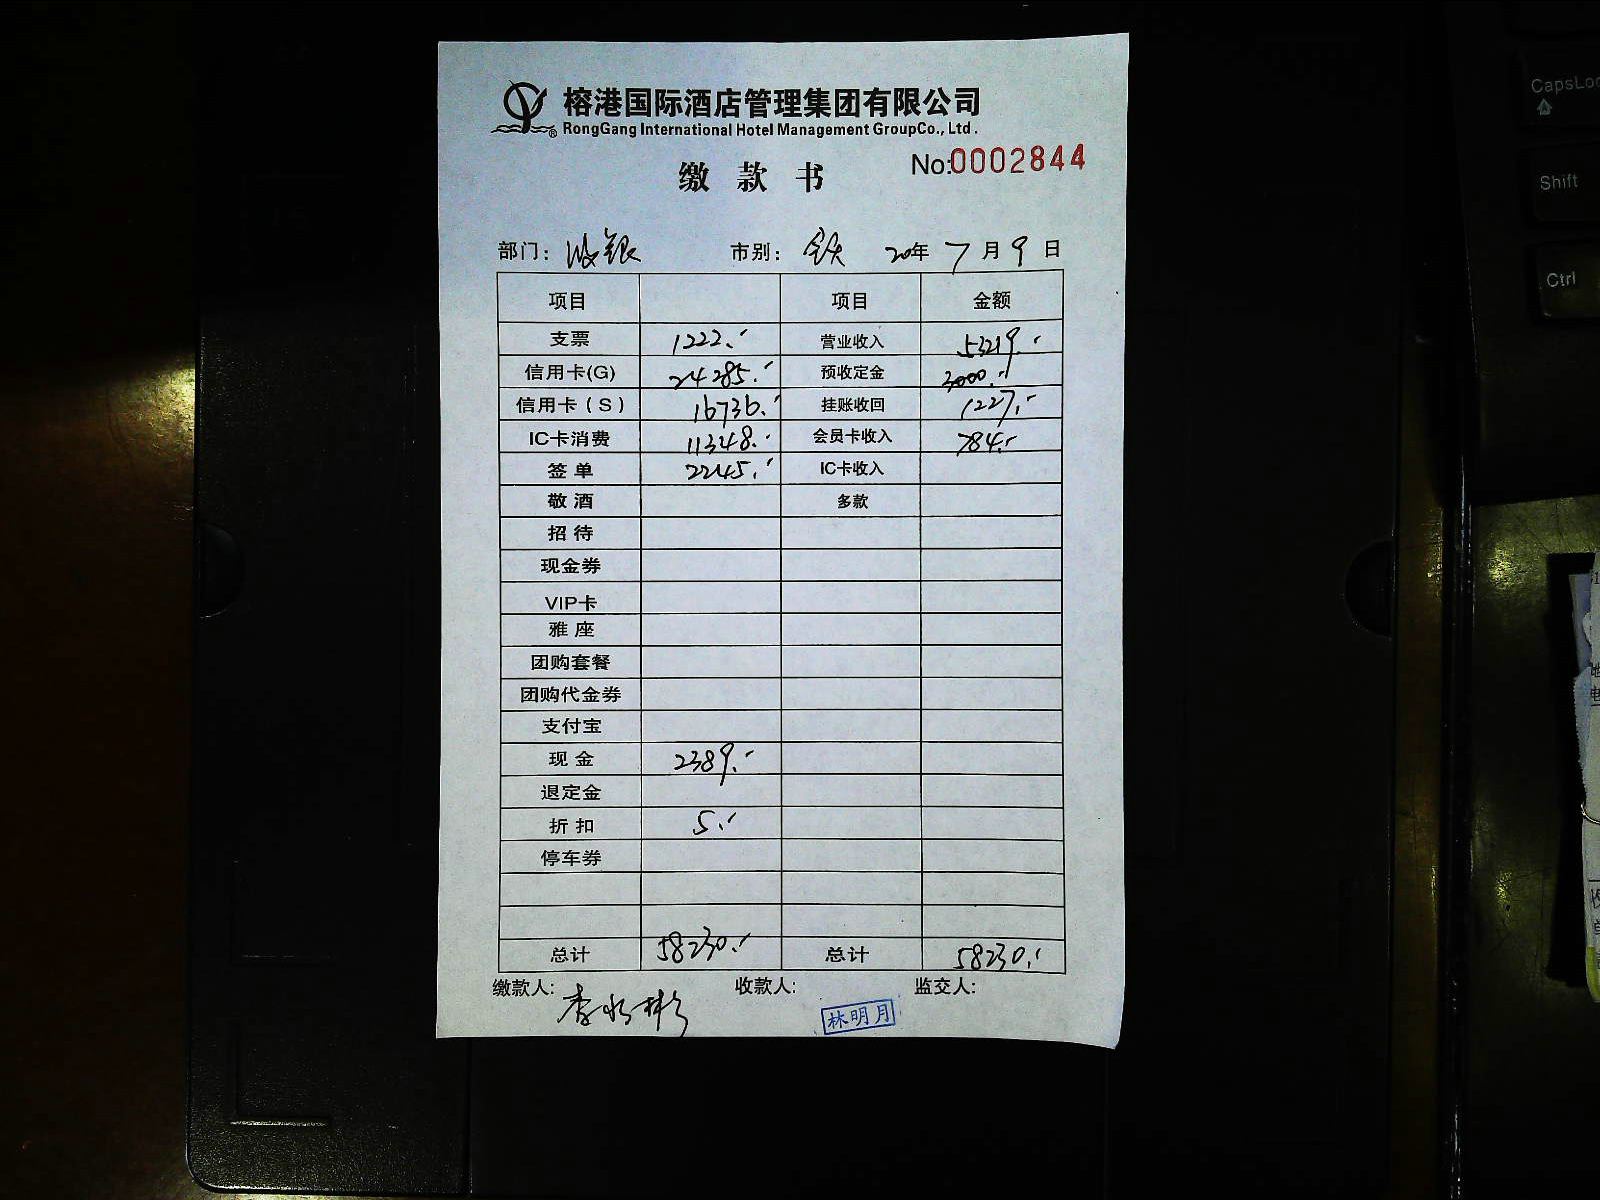 榕港国际酒店管理集团有限公司
RongGang International Hotel Management GroupCo., Ltd.
缴款书 No:0002844
部门: 收银 市别: 全天 20年 7月9日
项目 项目 金额
支票 1222.- 营业收入 53219.-
信用卡(G) 24285.- 预收定金 3000.-
信用卡(S) 16736.- 挂账收回 1227.-
IC卡消费 11348.- 会员卡收入 784.-
签单 2245.- IC卡收入
敬酒 多款
招待
现金券
VIP卡
雅座
团购套餐
团购代金券
支付宝
现金 2389.-
退定金
折扣 5.-
停车券
总计 58230.- 总计 58230.-
缴款人: 收款人: 监交人:
林明月
CapsLoc
Shift
Ctrl